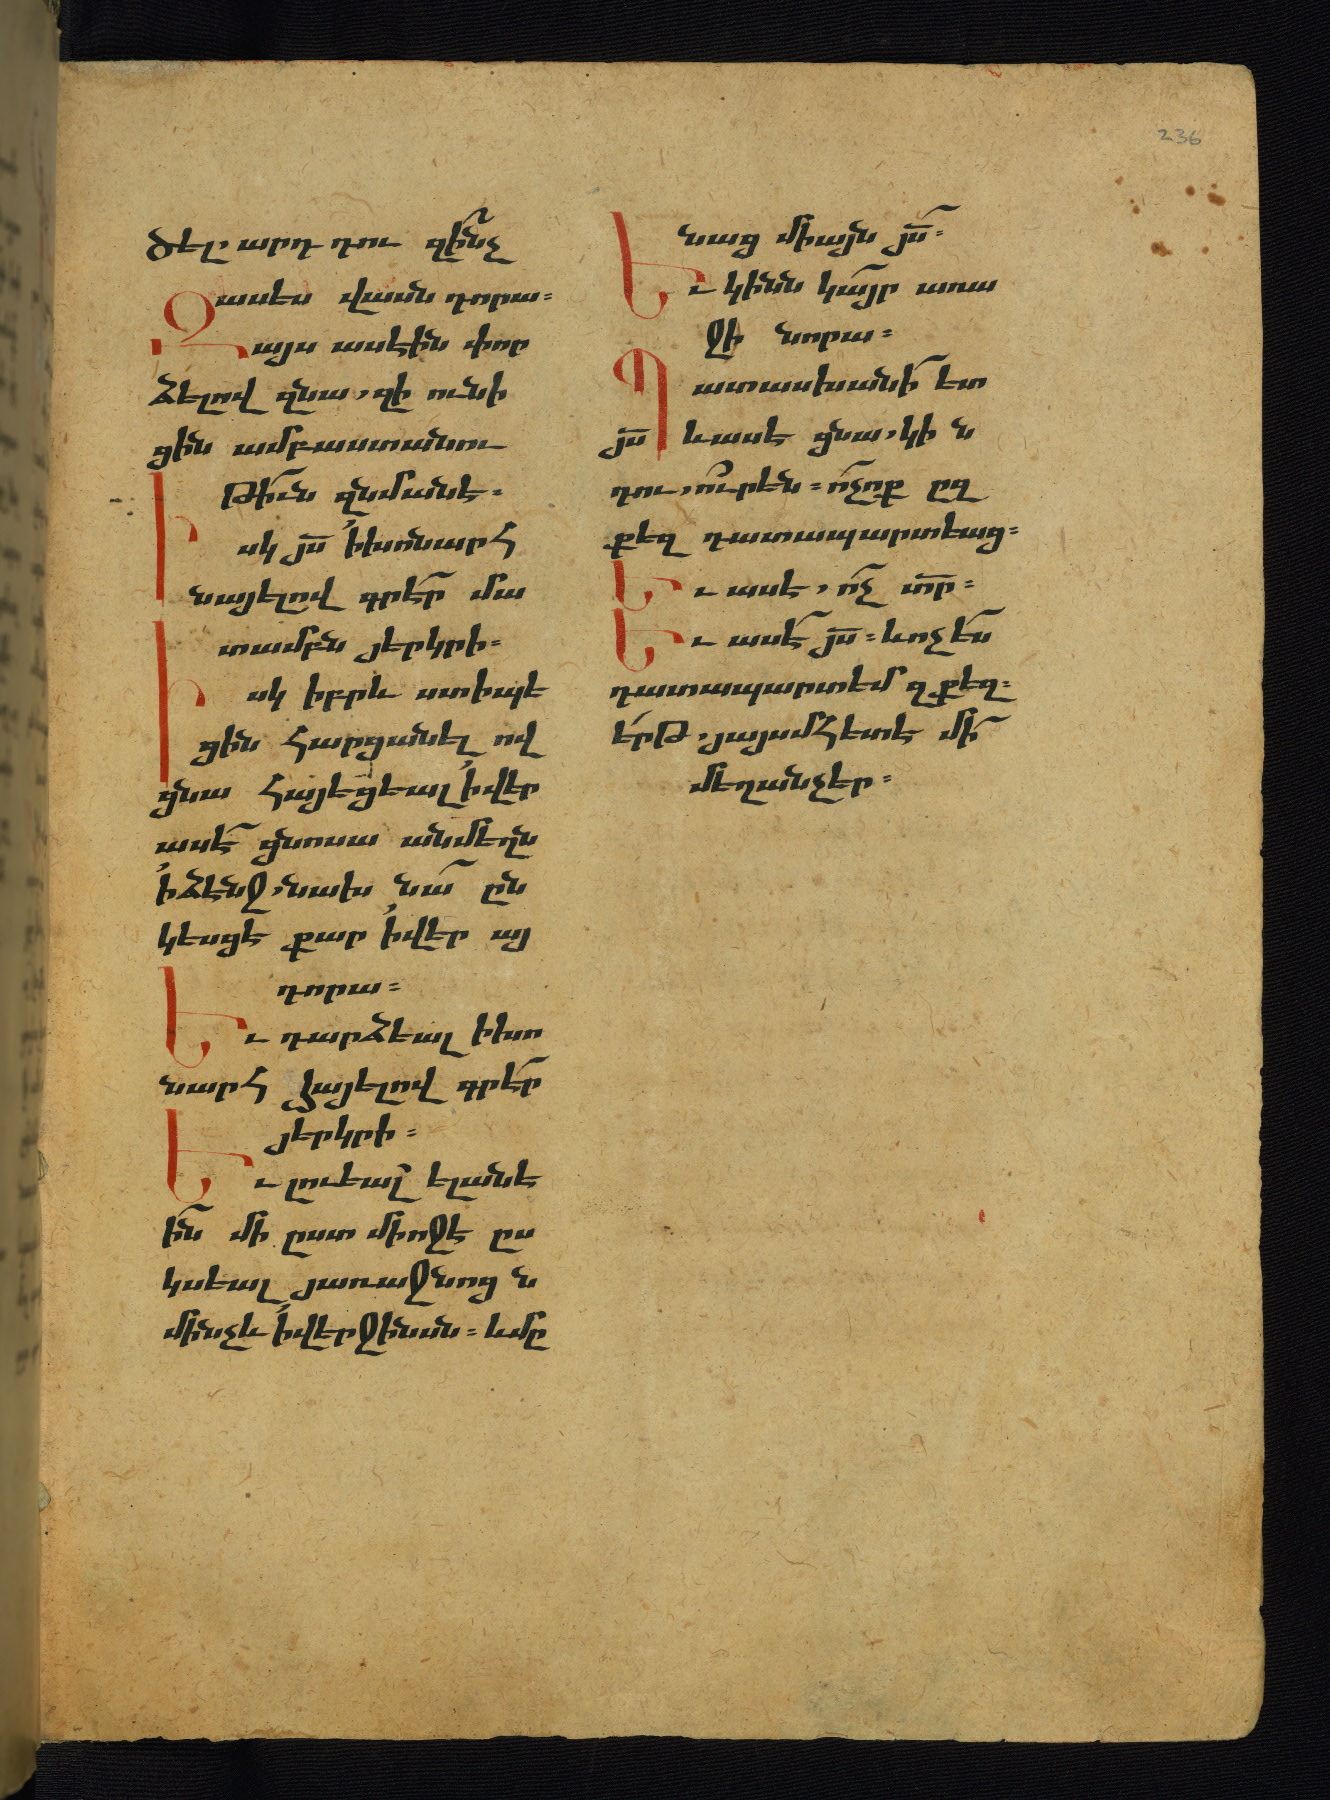 236
ծել՝ արդ դու զի՞նչ
ասես վասն դորա։
Զայս ասէին փոր
ձելով զնա, զի ունի
ցին ամբաստանու
թի՟ւն զնմանէ։
Իսկ յ՟ս ի խոնարհ
նայելով գրէ՟ր մա
տամբն յերկրի։
Իսկ իբրև ստիպե
ցին հարցանել ով
ցնա հայեցեալ ի վեր
ասէ՟ ցնոսա անմեղն
ի ձենջ, նախ նա՟ ըն
կեսցէ քար ի վեր այ
դորա։
Եւ դարձեալ ի խո
նարհ հայելով գրէ՟ր
յերկրի։
Եւ լուեալ՟ ելանե
ի՟ն մի ըստ միոջէ ըս
կսեալ յառաջնոց ն
մինչև ի վերջինսն։ և մը
նաց միայն յ՟ս։
Եւ կինն կա՟յր առա
ջի նորա։
Պատասխանի՟ ետ
յ՟ս և ասէ ցնա, կի ն
դու, ո՞ւր են։ ո՟չ ոք ըզ
քեզ դատապարտեաց։
Եւ ասէ, ո՟չ տ՟ր։
Եւ ասէ՟ յ՟ս։ և ոչ ե՟ս
դատապարտեմ զքեզ։
ե՛րթ, յայսմհետէ մի՟
մեղանչեր։